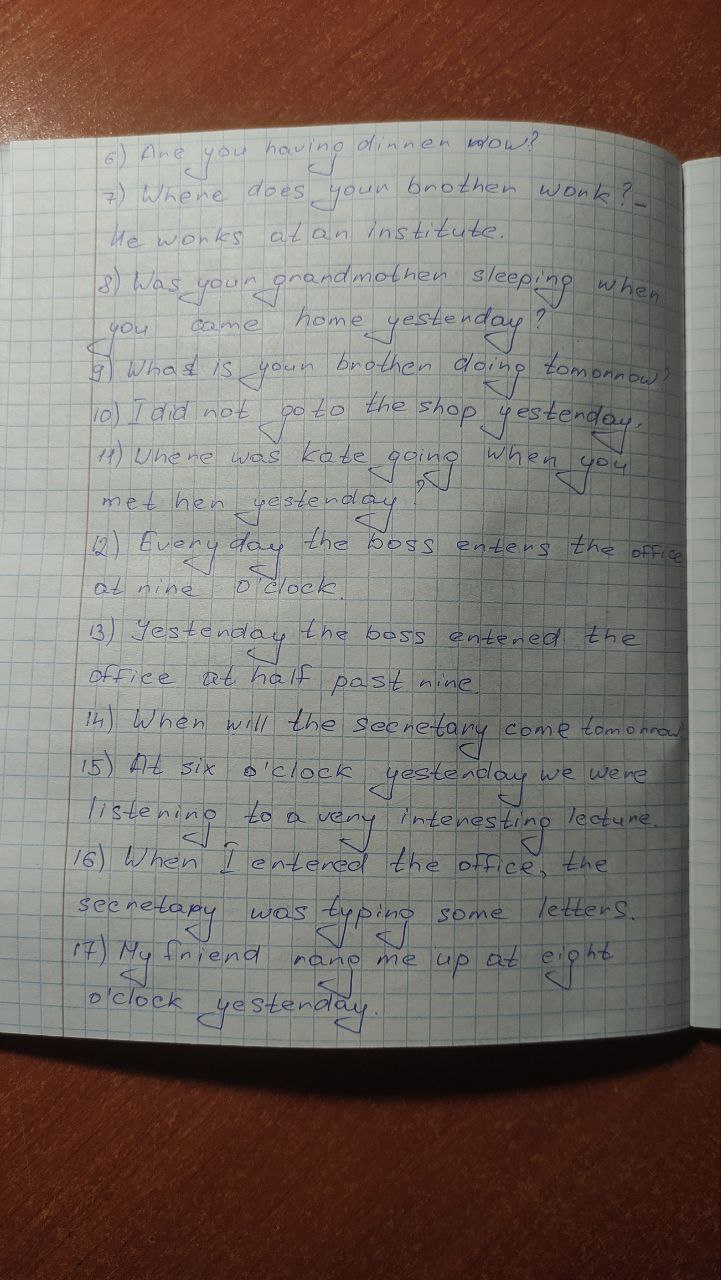 6) Are you having dinner now?
7) Where does your brother work? -
He works at an institute.
8) Was your grandmother sleeping when
you came home yesterday?
9) What is your brother doing tomorrow?
10) I did not go to the shop yesterday.
11) Where was Kate going when you
met her yesterday?
12) Every day the boss enters the office
at nine o'clock.
13) Yesterday the boss entered the
office at half past nine.
14) When will the secretary come tomorrow
15) At six o'clock yesterday we were
listening to a very interesting lecture.
16) When I entered the office, the
secretary was typing some letters.
17) My friend rang me up at eight
o'clock yesterday.